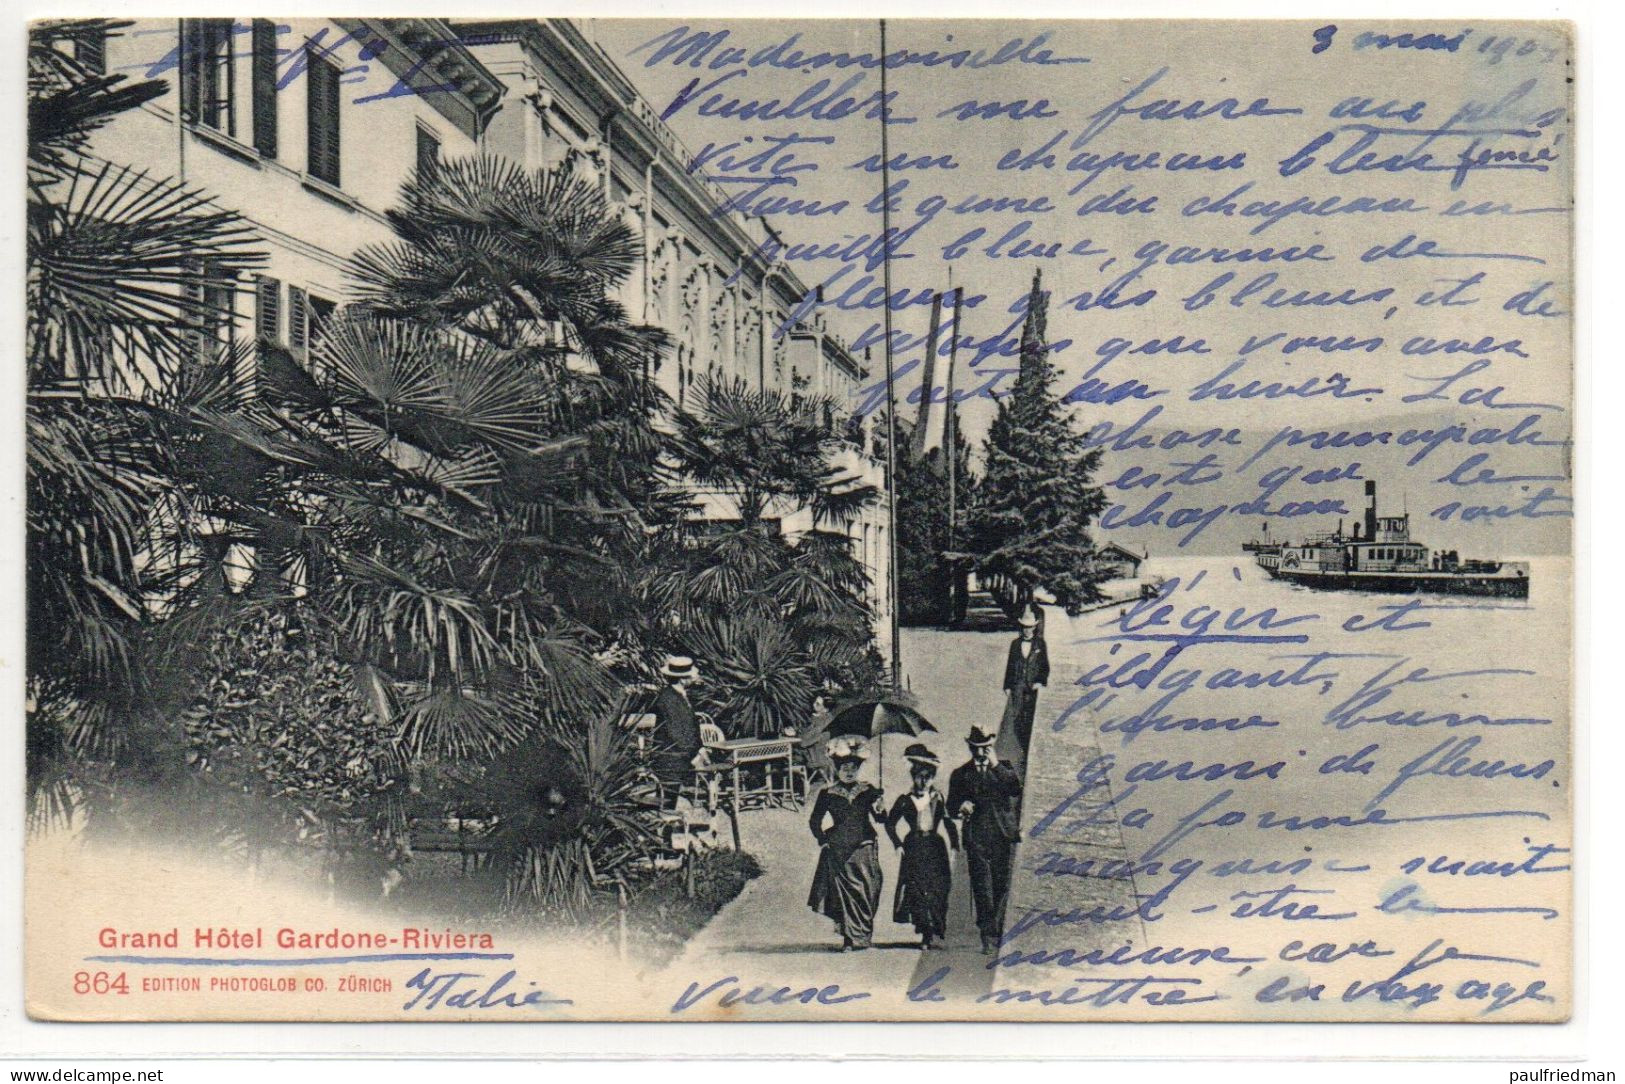 3 mai 1904
Mademoiselle
Veuillez me faire au plus
vite un chapeau bleu foncé
dans le genre du chapeau en
paille bleue, garnie de
fleurs gris bleues, et de
velours que vous avez
fait en hiver. La
chose principale
est que le
chapeau soit
léger et
élégant, je
l'aime bien
garni de fleurs.
La forme
marquise serait
peut-être le
mieux, car je
veux le mettre en voyage
Grand Hôtel Gardone-Riviera
864 EDITION PHOTOGLOB CO. ZÜRICH
Italie
delcampe.net
paulfriedman